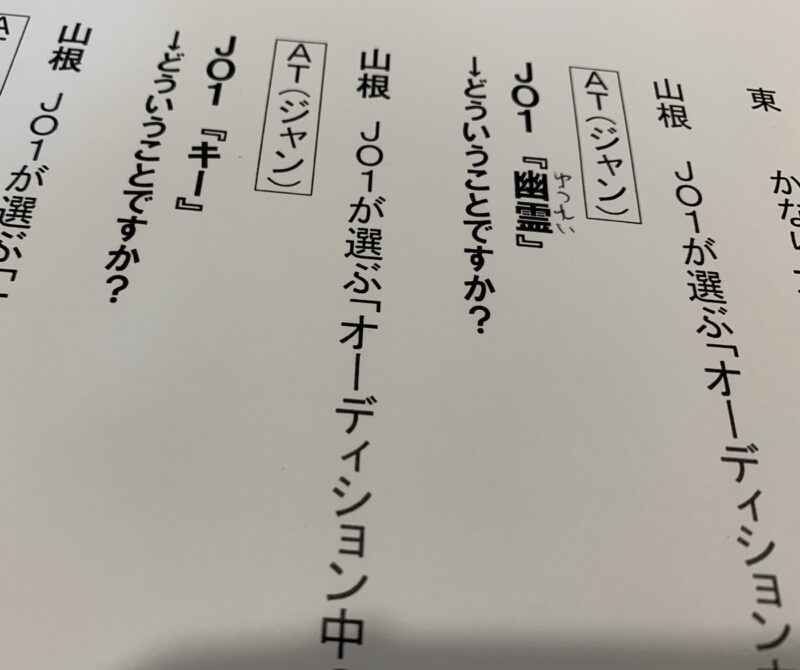 東　かない
山根　ＪＯ１が選ぶ「オーディション
ＡＴ（ジャン）
ＪＯ１『幽霊』
ゆうれい
→どういうことですか？
山根　ＪＯ１が選ぶ「オーディション中
ＡＴ（ジャン）
ＪＯ１『キー』
→どういうことですか？
山根　ＪＯ１が選ぶ「